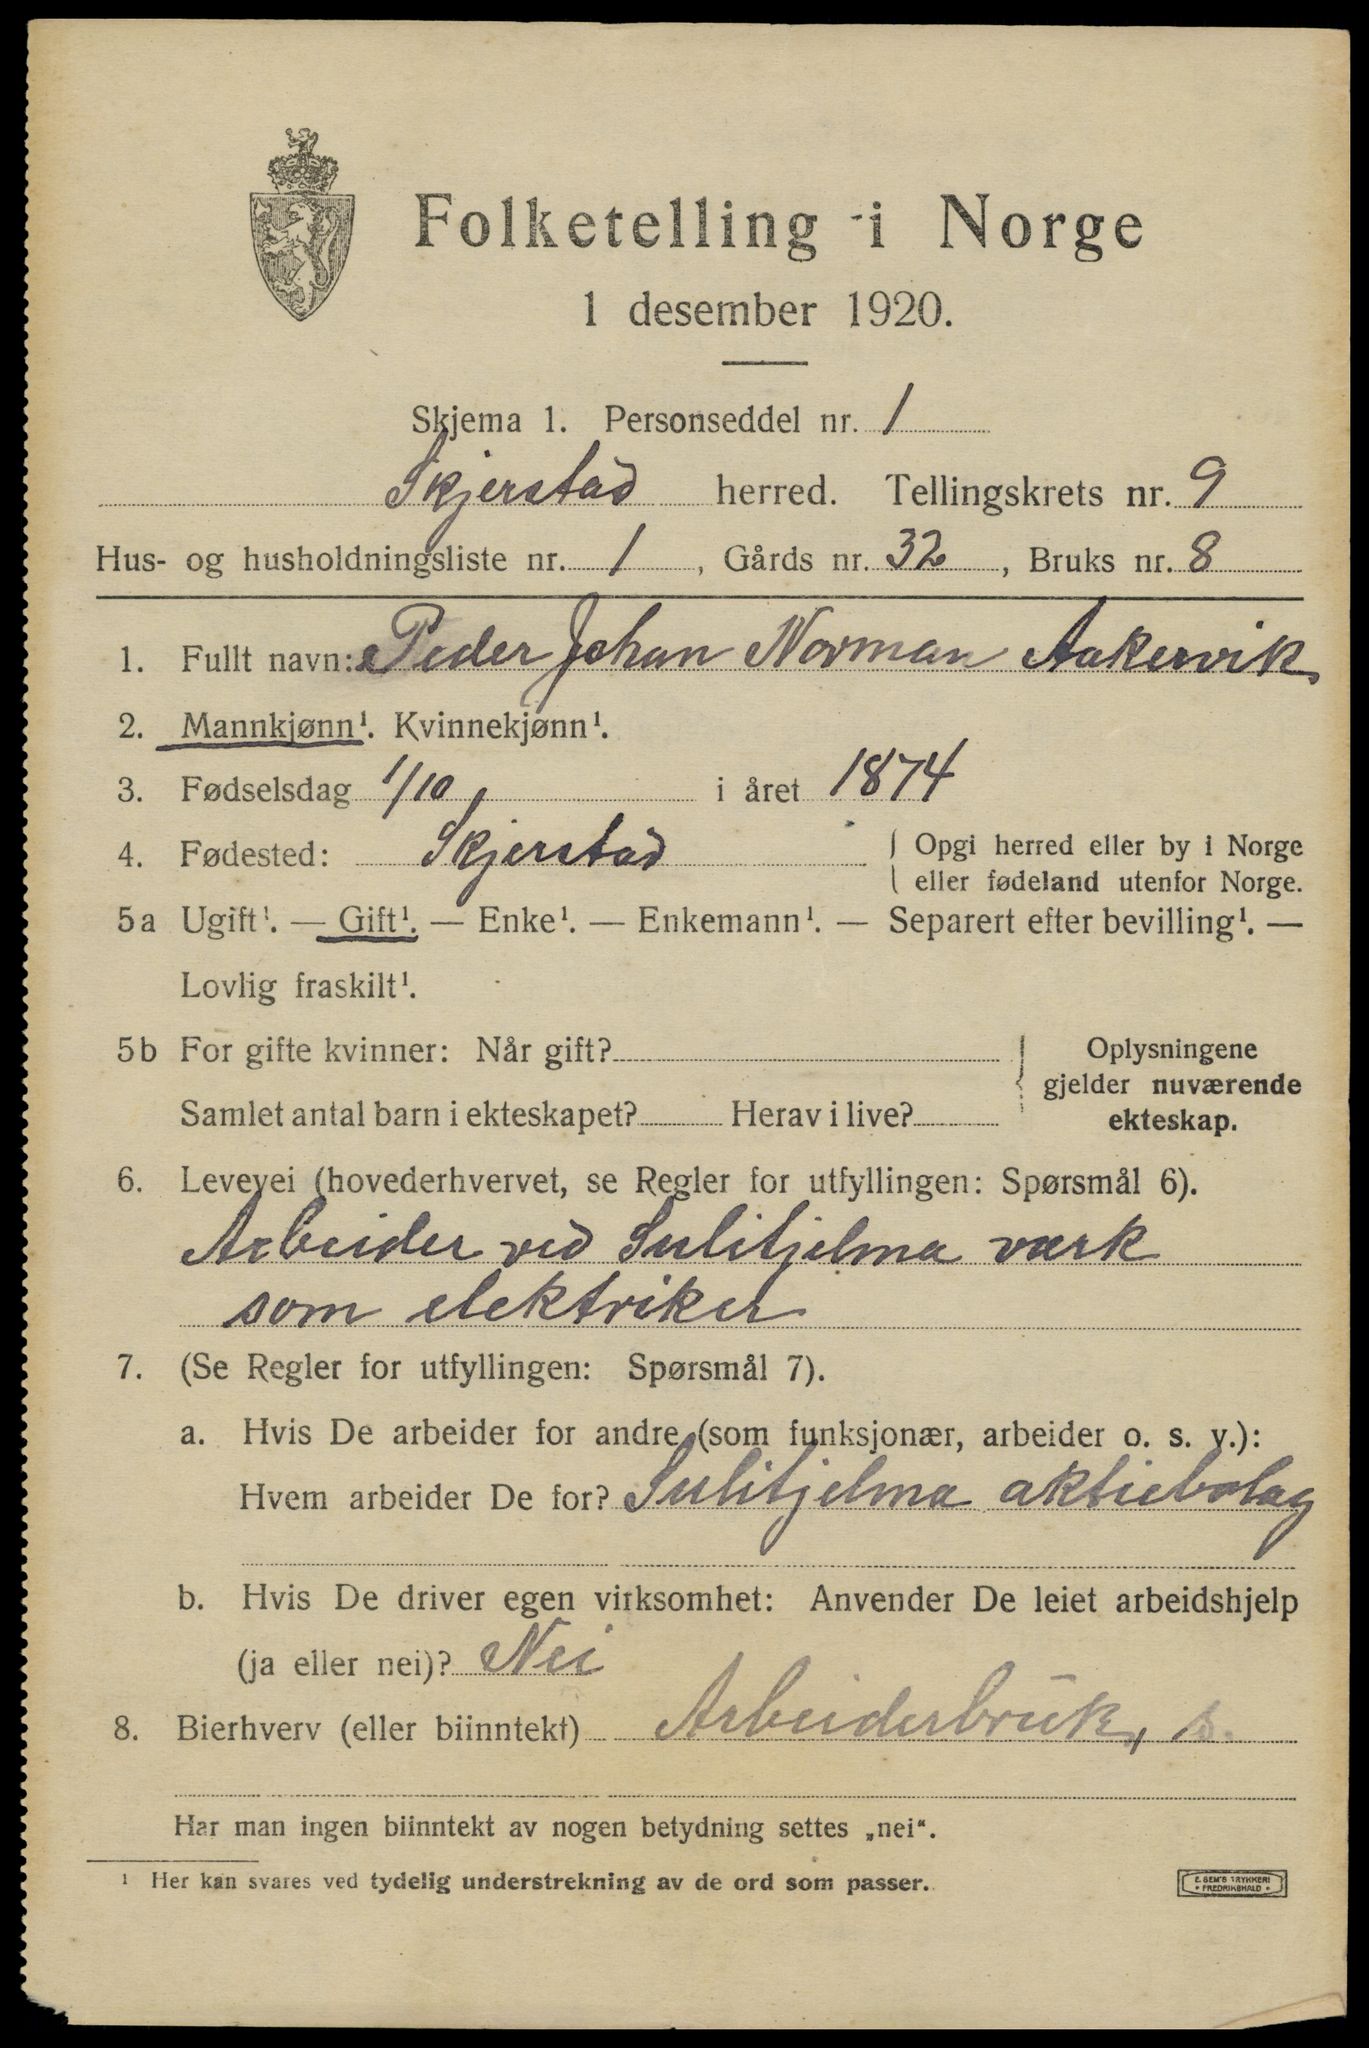 Folketelling i Norge
1 desember 1920.
Skjema 1. Personseddel nr. 1
Skjerstad herred. Tellingskrets nr. 9
Hus- og husholdningsliste nr. 1, Gårds nr. 32, Bruks nr. 8
1. Fullt navn: Peder Johan Norman Aakervik
2. Mannkjønn¹. Kvinnekjønn¹.
3. Fødselsdag 1/10 i året 1874
4. Fødested: Skjerstad { Opgi herred eller by i Norge
eller fødeland utenfor Norge.
5a Ugift¹. — Gift¹. — Enke¹. — Enkemann¹. — Separert efter bevilling¹. —
Lovlig fraskilt¹.
5b For gifte kvinner: Når gift? { Oplysningene
gjelder nuværende
Samlet antal barn i ekteskapet? Herav i live? ekteskap.
6. Levevei (hovederhvervet, se Regler for utfyllingen: Spørsmål 6).
Arbeider ved Sulitjelma værk
som elektriker
7. (Se Regler for utfyllingen: Spørsmål 7).
a. Hvis De arbeider for andre (som funksjonær, arbeider o. s. v.):
Hvem arbeider De for? Sulitjelma aktiebolag
b. Hvis De driver egen virksomhet: Anvender De leiet arbeidshjelp
(ja eller nei)? Nei
8. Bierhverv (eller biinntekt) Arbeiderbruk, s.
Har man ingen biinntekt av nogen betydning settes „nei“.
¹ Her kan svares ved tydelig understrekning av de ord som passer.
E. SEM'S TRYKKERI
• FREDRIKSHALD •